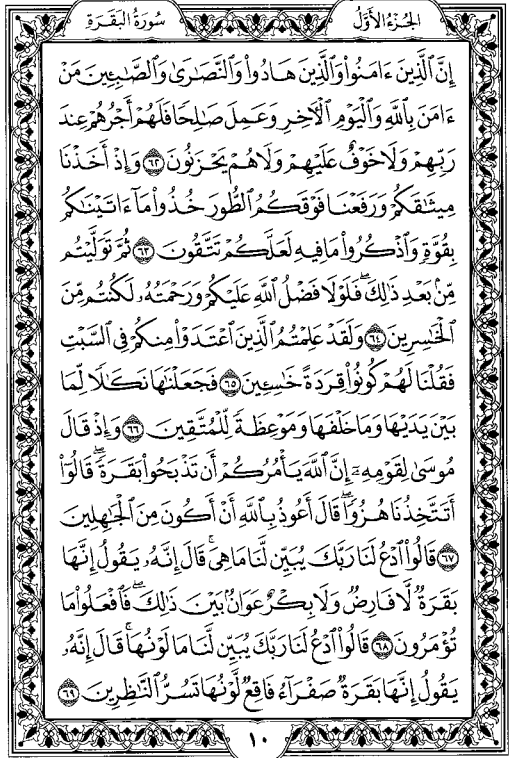 الجزء الأول
سورة البقرة
إِنَّ ٱلَّذِينَ ءَامَنُوا۟ وَٱلَّذِينَ هَادُوا۟ وَٱلنَّصَـٰرَىٰ وَٱلصَّـٰبِـِٔينَ مَنْ
ءَامَنَ بِٱللَّهِ وَٱلْيَوْمِ ٱلْـَٔاخِرِ وَعَمِلَ صَـٰلِحًا فَلَهُمْ أَجْرُهُمْ عِندَ
رَبِّهِمْ وَلَا خَوْفٌ عَلَيْهِمْ وَلَا هُمْ يَحْزَنُونَ ٦٢ وَإِذْ أَخَذْنَا
مِيثَـٰقَكُمْ وَرَفَعْنَا فَوْقَكُمُ ٱلطُّورَ خُذُوا۟ مَآ ءَاتَيْنَـٰكُم
بِقُوَّةٍ وَٱذْكُرُوا۟ مَا فِيهِ لَعَلَّكُمْ تَتَّقُونَ ٦٣ ثُمَّ تَوَلَّيْتُم
مِّنۢ بَعْدِ ذَٰلِكَ ۖ فَلَوْلَا فَضْلُ ٱللَّهِ عَلَيْكُمْ وَرَحْمَتُهُۥ لَكُنتُم مِّنَ
ٱلْخَـٰسِرِينَ ٦٤ وَلَقَدْ عَلِمْتُمُ ٱلَّذِينَ ٱعْتَدَوْا۟ مِنكُمْ فِى ٱلسَّبْتِ
فَقُلْنَا لَهُمْ كُونُوا۟ قِرَدَةً خَـٰسِـِٔينَ ٦٥ فَجَعَلْنَـٰهَا نَكَـٰلًا لِّمَا
بَيْنَ يَدَيْهَا وَمَا خَلْفَهَا وَمَوْعِظَةً لِّلْمُتَّقِينَ ٦٦ وَإِذْ قَالَ
مُوسَىٰ لِقَوْمِهِۦٓ إِنَّ ٱللَّهَ يَأْمُرُكُمْ أَن تَذْبَحُوا۟ بَقَرَةً ۖ قَالُوٓا۟
أَتَتَّخِذُنَا هُزُوًا ۖ قَالَ أَعُوذُ بِٱللَّهِ أَنْ أَكُونَ مِنَ ٱلْجَـٰهِلِينَ
٦٧ قَالُوا۟ ٱدْعُ لَنَا رَبَّكَ يُبَيِّن لَّنَا مَا هِىَ ۚ قَالَ إِنَّهُۥ يَقُولُ إِنَّهَا
بَقَرَةٌ لَّا فَارِضٌ وَلَا بِكْرٌ عَوَانٌۢ بَيْنَ ذَٰلِكَ ۖ فَٱفْعَلُوا۟ مَا
تُؤْمَرُونَ ٦٨ قَالُوا۟ ٱدْعُ لَنَا رَبَّكَ يُبَيِّن لَّنَا مَا لَوْنُهَا ۚ قَالَ إِنَّهُۥ
يَقُولُ إِنَّهَا بَقَرَةٌ صَفْرَآءُ فَاقِعٌ لَّوْنُهَا تَسُرُّ ٱلنَّـٰظِرِينَ ٦٩
١٠